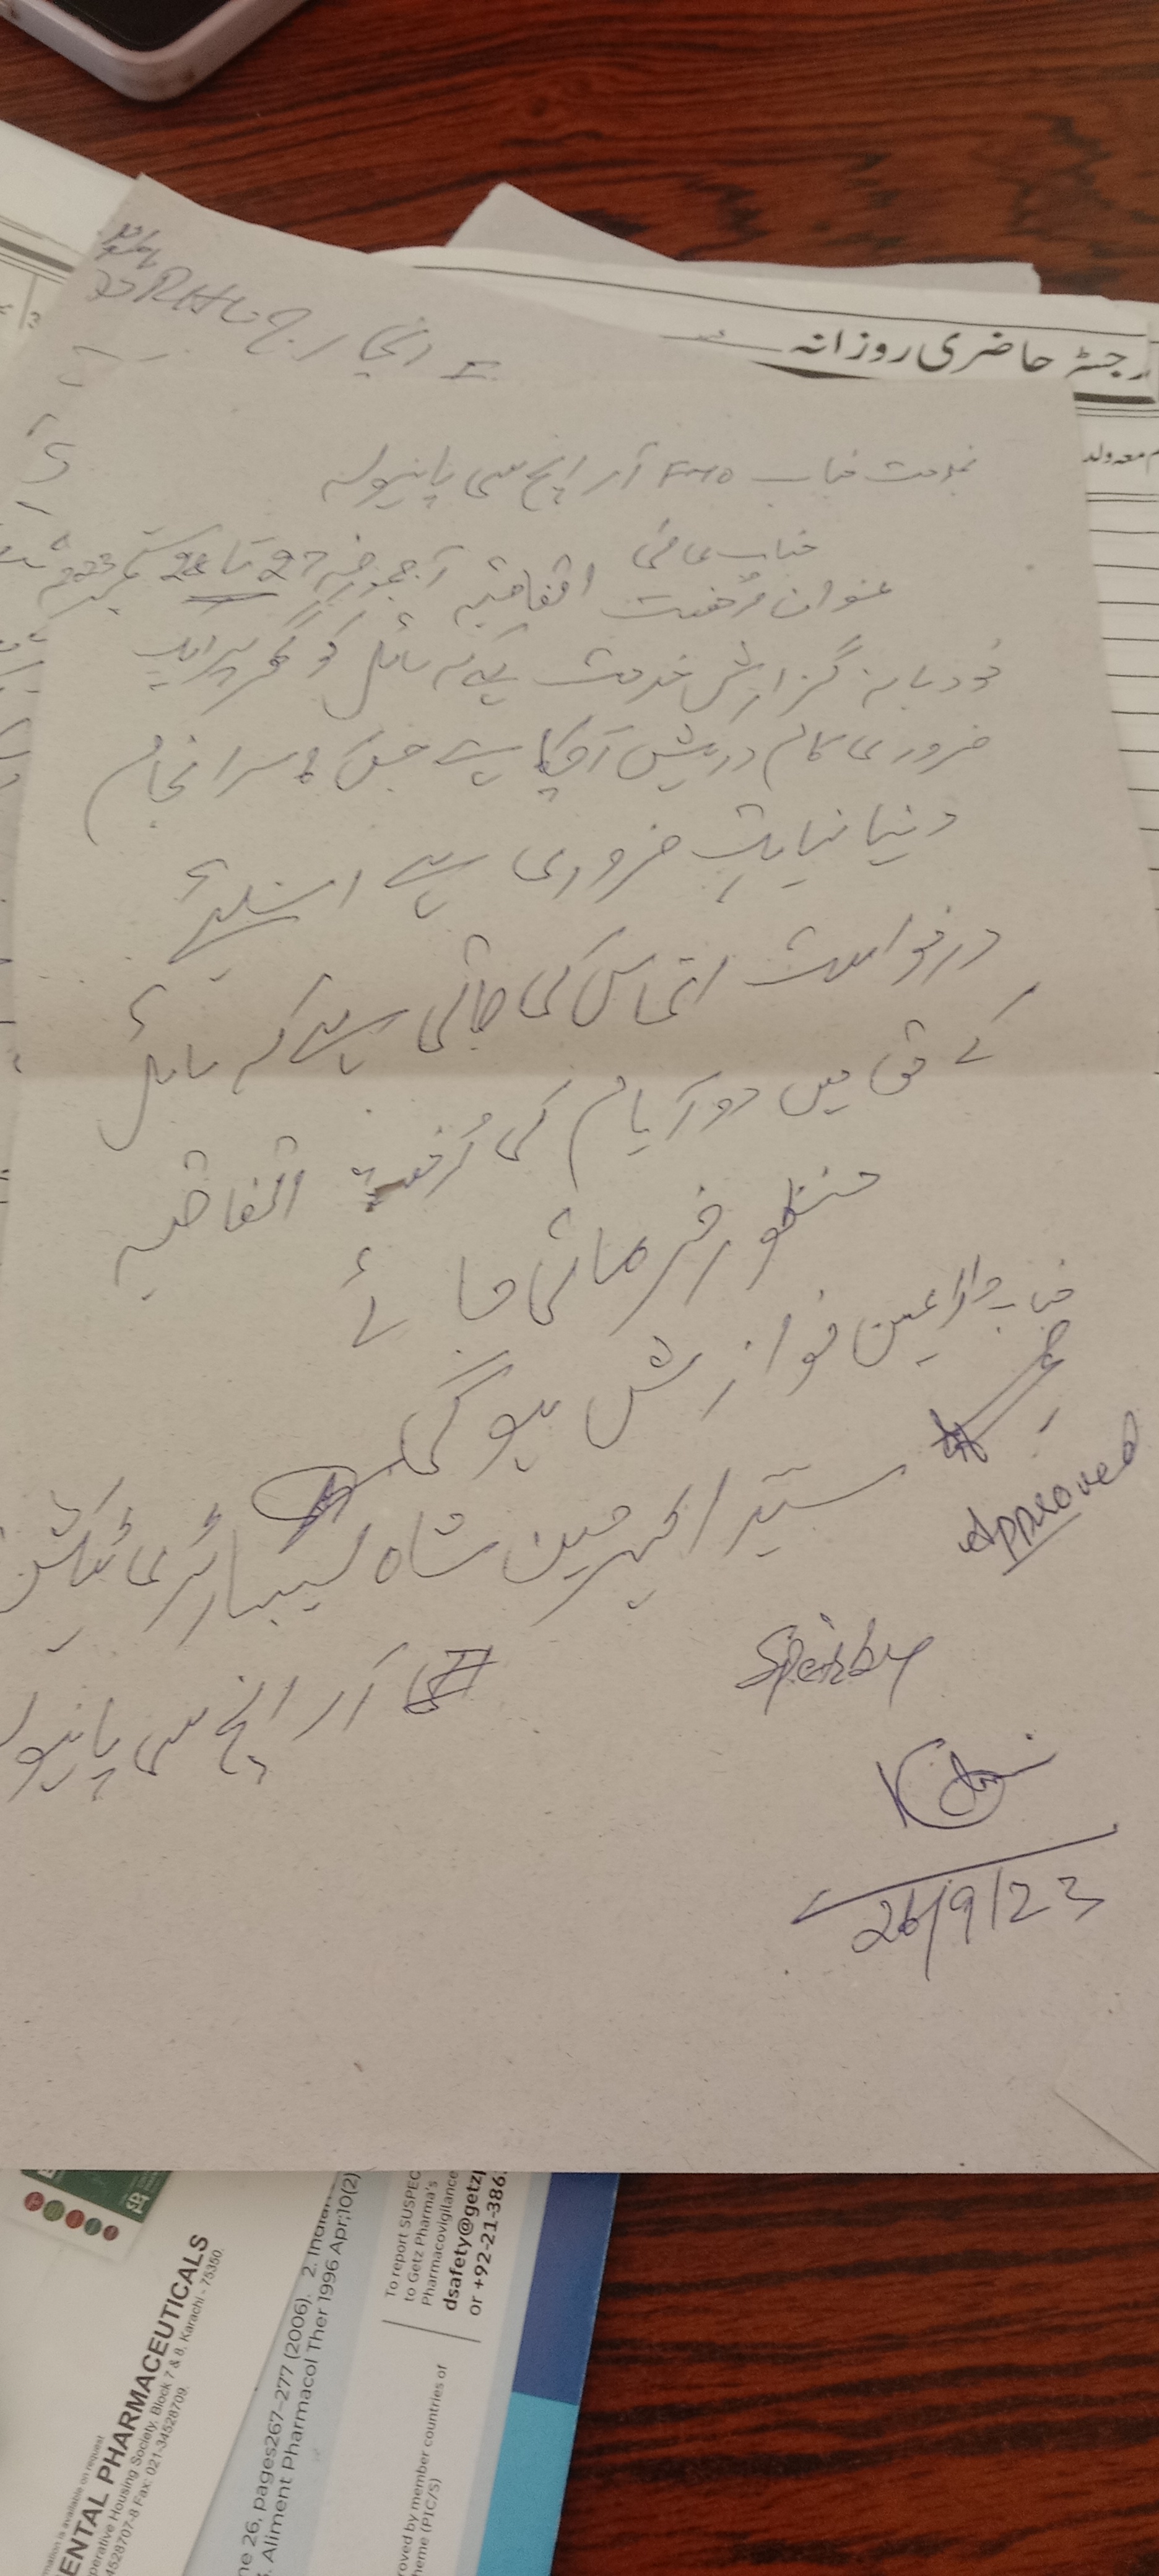 انچارج RHC
رجسٹر حاضری روزانہ
بخدمت جناب FMO آر ایچ سی پانیولہ
جناب عالی
عنوان رُخصت اتفاقیہ آجمورخہ 27 تا 28 ستمبر 2023
مودبانہ گزارش خدمت ہیکہ سائل کو گھر پر ایک
ضروری کام درپیش آچکا ہے جس کا سر انجام
دینا نہایت ضروری ہے اسلیئے
درخواست التماس کی جاتی ہے کہ سائل
کے حق میں دو آیام کی رُخصت اتفاقیہ
منظور فرمائی جائے
جناب والا عین نوازش ہوگی
سید اکبر حسین شاہ لیبارٹری
آر ایچ سی پانیولہ
Approved
26/9/23
ENTAL PHARMACEUTICALS
perative Housing Society, Block 7 & 8, Karachi - 75350.
4528707-8 Fax: 021-34528709.
ne 26, pages267–277 (2006). 2.
. Aliment Pharmacol Ther 1996 Apr;10(2)
To report SUSPEC
to Getz Pharma's
Pharmacovigilance
dsafety@getz
or +92-21-386
roved by member countries of
heme (PIC/S)